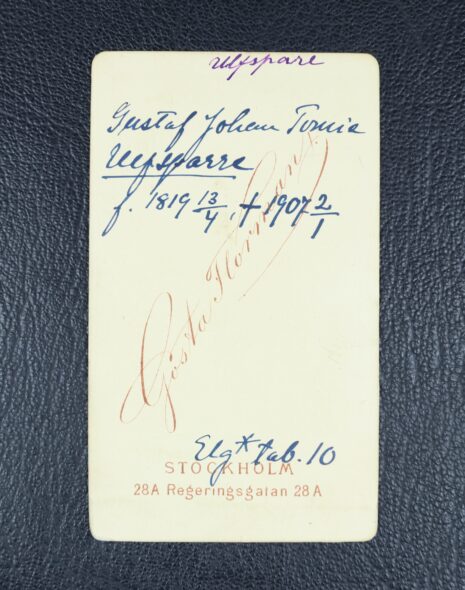 Ulfspare
Gustaf Johan Tomie
Ulfsparre
f. 1819 13/4, † 1907 2/1
Gösta Florman.
Elg* tab. 10
STOCKHOLM
28A Regeringsgatan 28A